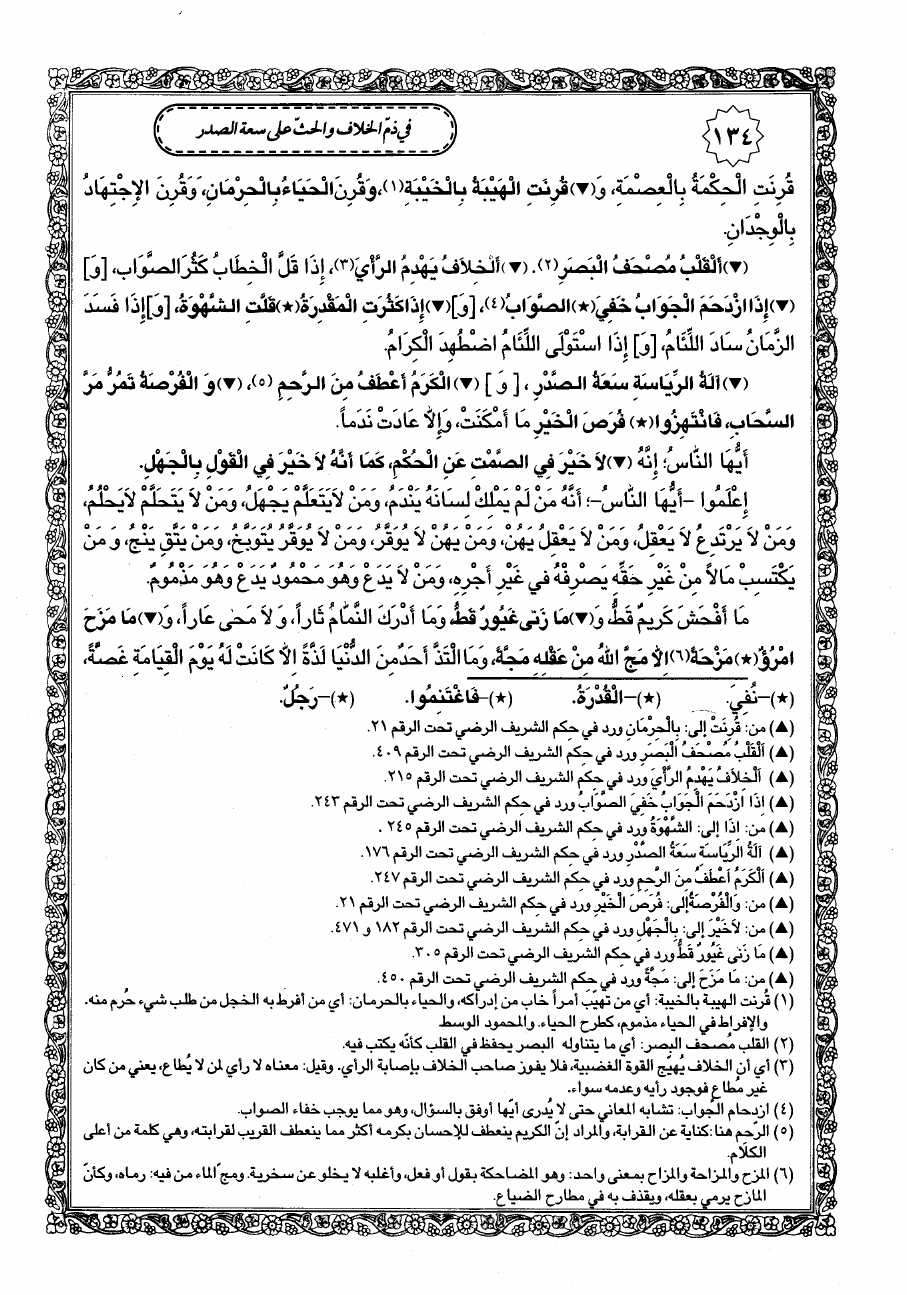 ١٣٤
في ذمّ الخلاف والحثّ على سعة الصدر
قُرِنَتِ الْحِكْمَةُ بِالْعِصْمَةِ، وَ(▼)قُرِنَتِ الْهَيْبَةُ بِالْخَيْبَةِ(١)، وَقُرِنَ الْحَيَاءُ بِالْحِرْمَانِ، وَقُرِنَ الإِجْتِهَادُ
بِالْوِجْدَانِ.
(▼)أَلْقَلْبُ مُصْحَفُ الْبَصَرِ(٢). (▼)أَلْخِلاَفُ يَهْدِمُ الرَّأْيَ(٣)، إِذَا قَلَّ الْخِطَابُ كَثُرَ الصَّوَاب، [وَ]
(▼)إِذَا ازْدَحَمَ الْجَوَابُ خَفِيَ(★)الصَّوَابُ(٤)، [وَ](▼)إِذَا كَثُرَتِ الْمَقْدِرَةُ(★)قَلَّتِ الشَّهْوَةُ، [وَ]إِذَا فَسَدَ
الزَّمَانُ سَادَ اللِّئَامُ، [وَ] إِذَا اسْتَوْلَى اللِّئَامُ اضْطُهِدَ الْكِرَامُ.
(▼)آلَةُ الرِّيَاسَةِ سَعَةُ الصَّدْرِ، [ وَ ] (▼)الْكَرَمُ أَعْطَفُ مِنَ الرَّحِمِ (٥)، (▼)وَ الْفُرْصَةُ تَمُرُّ مَرَّ
السَّحَابِ، فَانْتَهِزُوا(★) فُرَصَ الْخَيْرِ مَا أَمْكَنَتْ، وَإِلاَّ عَادَتْ نَدَماً.
أَيُّهَا النَّاسُ؛ إِنَّهُ (▼)لاَ خَيْرَ فِي الصَّمْتِ عَنِ الْحُكْمِ، كَمَا أَنَّهُ لاَ خَيْرَ فِي الْقَوْلِ بِالْجَهْلِ.
إِعْلَمُوا -أَيُّهَا النَّاسُ-؛ أَنَّهُ مَنْ لَمْ يَمْلِكْ لِسَانَهُ يَنْدَمُ، وَمَنْ لاَيَتَعَلَّمْ يَجْهَلُ، وَمَنْ لاَ يَتَحَلَّمْ لاَيَحْلُمُ،
وَمَنْ لاَ يَرْتَدِعُ لاَ يَعْقِلُ، وَمَنْ لاَ يَعْقِلُ يَهُنْ، وَمَنْ يَهُنْ لاَ يُوَقَّرُ، وَمَنْ لاَ يُوَقَّرُ يُتَوَبَّخُ، وَمَنْ يَتَّقِ يَنْجُ، وَ مَنْ
يَكْتَسِبْ مَالاً مِنْ غَيْرِ حَقِّهِ يَصْرِفْهُ فِي غَيْرِ أَجْرِهِ، وَمَنْ لاَ يَدَعْ وَهُوَ مَحْمُودٌ يَدَعْ وَهُوَ مَذْمُومٌ.
مَا أَفْحَشَ كَرِيمٌ قَطُّ، وَ(▼)مَا زَنَى غَيُورٌ قَطُّ، وَمَا أَدْرَكَ النَّمَّامُ ثَاراً، وَ لاَ مَحَى عَاراً، وَ(▼)مَا مَزَحَ
امْرُؤٌ(★)مَزْحَةً(٦)إِلاَّ مَجَّ اللهُ مِنْ عَقْلِهِ مَجَّةً، وَمَا الْتَذَّ أَحَدٌ مِنَ الدُّنْيَا لَذَّةً إِلاَّ كَانَتْ لَهُ يَوْمَ الْقِيَامَةِ غَصَّةً،
(★)-نُفِيَ. (★)-الْقُدْرَةُ. (★)-فَاغْتَنِمُوا. (★)-رَجُلٌ.
(▲) من: قُرِنَتْ إلى: بِالْحِرْمَانِ ورد في حكم الشريف الرضي تحت الرقم ٢١.
(▲) اَلْقَلْبُ مُصْحَفُ الْبَصَرِ ورد في حكم الشريف الرضي تحت الرقم ٤٠٩.
(▲) اَلْخلاَفُ يَهْدِمُ الرَّأْيَ ورد في حكم الشريف الرضي تحت الرقم ٢١٥.
(▲) إِذَا ازْدَحَمَ الْجَوَابُ خَفِيَ الصَّوَابُ ورد في حكم الشريف الرضي تحت الرقم ٢٤٣.
(▲) من: اذَا إلى: الشَّهْوَةُ ورد في حكم الشريف الرضي تحت الرقم ٢٤٥ .
(▲) آلَةُ الرِّيَاسَةِ سَعَةُ الصَّدْرِ ورد في حكم الشريف الرضي تحت الرقم ١٧٦.
(▲) اَلْكَرَمُ أَعْطَفُ مِنَ الرَّحِمِ ورد في حكم الشريف الرضي تحت الرقم ٢٤٧.
(▲) من: وَالْفُرْصَةُ إلى: فُرَصَ الْخَيْرِ ورد في حكم الشريف الرضي تحت الرقم ٢١.
(▲) من: لاَخَيْرَ إلى: بِالْجَهْلِ ورد في حكم الشريف الرضي تحت الرقم ١٨٢ و ٤٧١.
(▲) مَا زَنَى غَيُورٌ قَطُّ ورد في حكم الشريف الرضي تحت الرقم ٣٠٥.
(▲) من: مَا مَزَحَ إلى: مَجَّةً ورد في حكم الشريف الرضي تحت الرقم ٤٥٠.
(١) قُرنت الهيبة بالخيبة: أي من تهيّب أمراً خاب من إدراكه، والحياء بالحرمان: أي من أفرط به الخجل من طلب شيء حُرم منه.
والإفراط في الحياء مذموم، كطرح الحياء. والمحمود الوسط
(٢) القلب مُصحف البصر: أي ما يتناوله البصر يحفظ في القلب كأنّه يكتب فيه.
(٣) أي أن الخلاف يُهيّج القوة الغضبية، فلا يفوز صاحب الخلاف بإصابة الرأي. وقيل: معناه لا رأي لمن لا يُطاع، يعني من كان
غير مُطاع فوجود رأيه وعدمه سواء.
(٤) ازدحام الجواب: تشابه المعاني حتى لا يُدرى أيّها أوفق بالسؤال، وهو مما يوجب خفاء الصواب.
(٥) الرّحِم هنا: كناية عن القرابة، والمراد إنّ الكريم ينعطف للإحسان بكرمه أكثر مما ينعطف القريب لقرابته، وهي كلمة من أعلى
الكلام.
(٦) المزح والمزاحة والمزاح بمعنى واحد: وهو المضاحكة بقول أو فعل، وأغلبه لا يخلو عن سخرية. ومجّ الماء من فيه: رماه، وكأنّ
المازح يرمي بعقله، ويقذف به في مطارح الضياع.